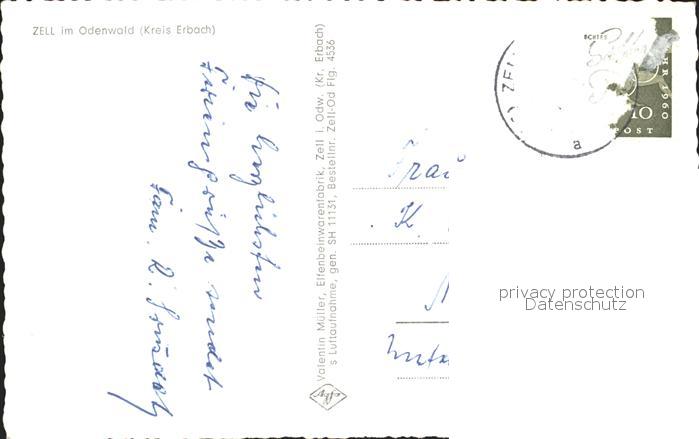 ZELL im Odenwald (Kreis Erbach)
Die herzlichsten
Feriengrüße sendet
Fam. R.
Valentin Müller, Elfenbeinwarenfabrik, Zell i. Odw. (Kr. Erbach)
s Luftaufnahme, gen. SH 11131, Bestellnr. Zell-Od Flg. 4536
ZEL
a
1960
10
POST
Frau
K.
privacy protection
Datenschutz